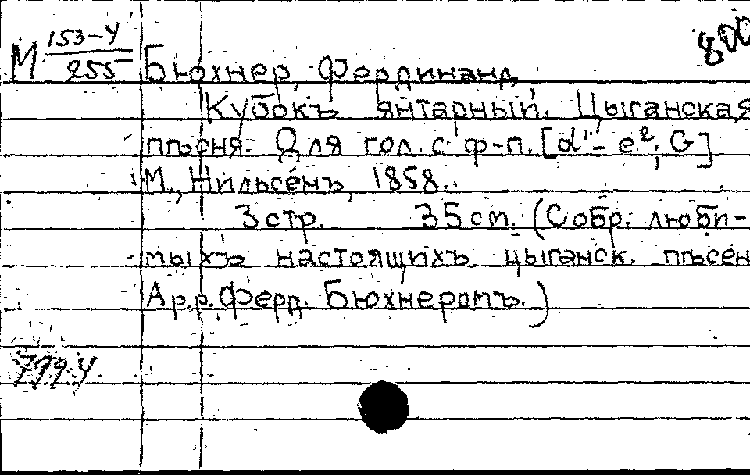 800
М 153-4/255 Бюхнер, Фердинанд
Кубокъ янтарный. Цыганская
пѣсня. Для гол. с ф-п. [d¹-e²; G]
М., Нильсенъ, 1858.
3 стр. 35 сп. (Собр. люби-
мыхъ настоящихъ цыганск. пѣсен
Арр. Ферд. Бюхнеромъ.)